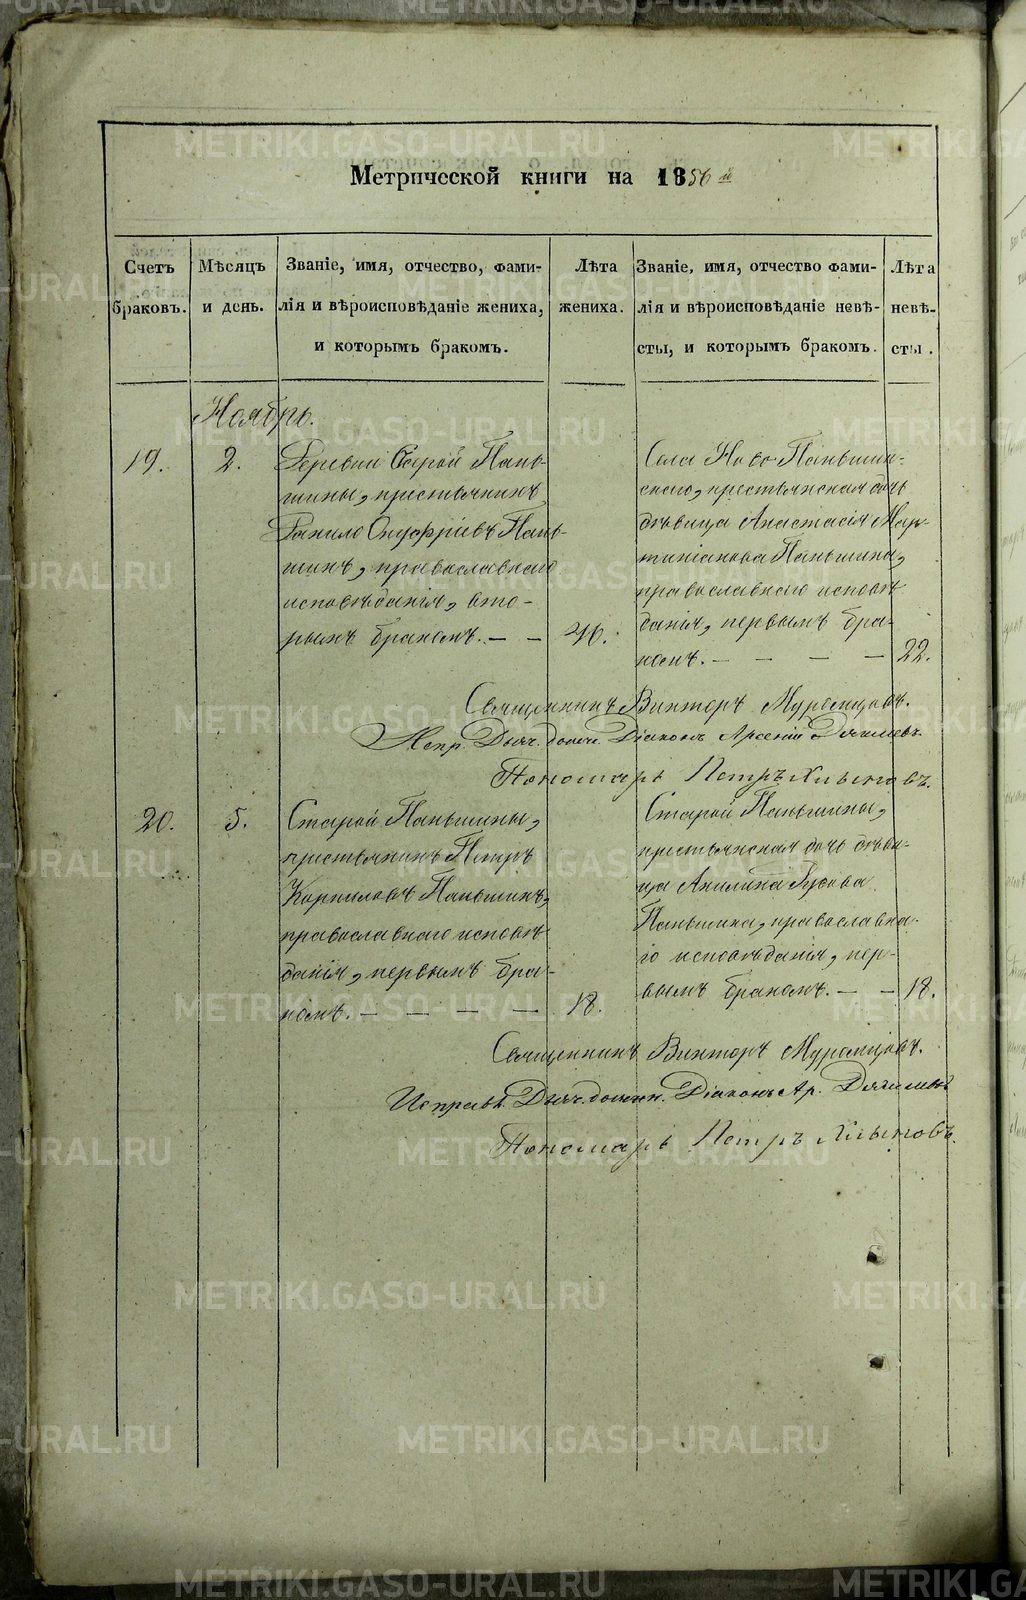 Метрической книги на 1856й
Счетъ браковъ.
Мѣсяцъ и день.
Званіе, имя, отчество, фами-
лія и вѣроисповѣданіе жениха,
и которымъ бракомъ.
Лѣта жениха.
Званіе, имя, отчество фами-
лія и вѣроисповѣданіе невѣ-
сты, и которымъ бракомъ.
Лѣта невѣ-
сты.
Ноябрь.
19.
2.
Деревни Старой Пань-
шины, крестьянинъ
Данило Онуфріевъ Пань-
шинъ, православнаго
исповѣданія, вто-
рымъ бракомъ. — —
Села Ново Паньшин-
скаго, крестьянская дочь
дѣвица Анастасія Мар-
тиніанова Паньшина,
православнаго исповѣ
данія, первымъ бра-
комъ. — — — — 22.
Священникъ Викторъ Муромцовъ.
Испр. Дьяч. должн. Діаконъ Арсеній
Пономарь Петръ Хлыновъ.
20.
5.
Старой Паньшины,
крестьянинъ Петръ
Корниловъ Паньшинъ,
православнаго исповѣ
данія, первымъ бра-
комъ. — — — — 18.
Старой Паньшины,
крестьянская дочь дѣви-
ца Акилина
Паньшина, православна-
го исповѣданія, пер-
вымъ бракомъ. — — 18.
Священникъ Викторъ Муромцовъ.
Исправ. Дьяч. должн. Діаконъ Ар.
Пономарь Петръ Хлыновъ.
METRIKI.GASO-URAL.RU